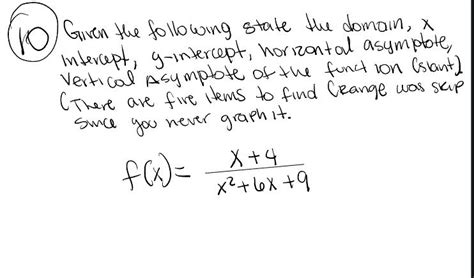 10 Given the following state the domain, x
intercept, y-intercept, horizontal asymptote,
Vertical Asymptote of the function (slant)
(There are five items to find (range was skip
since you never graph it.
f(x) = x+4 / x²+6x+9